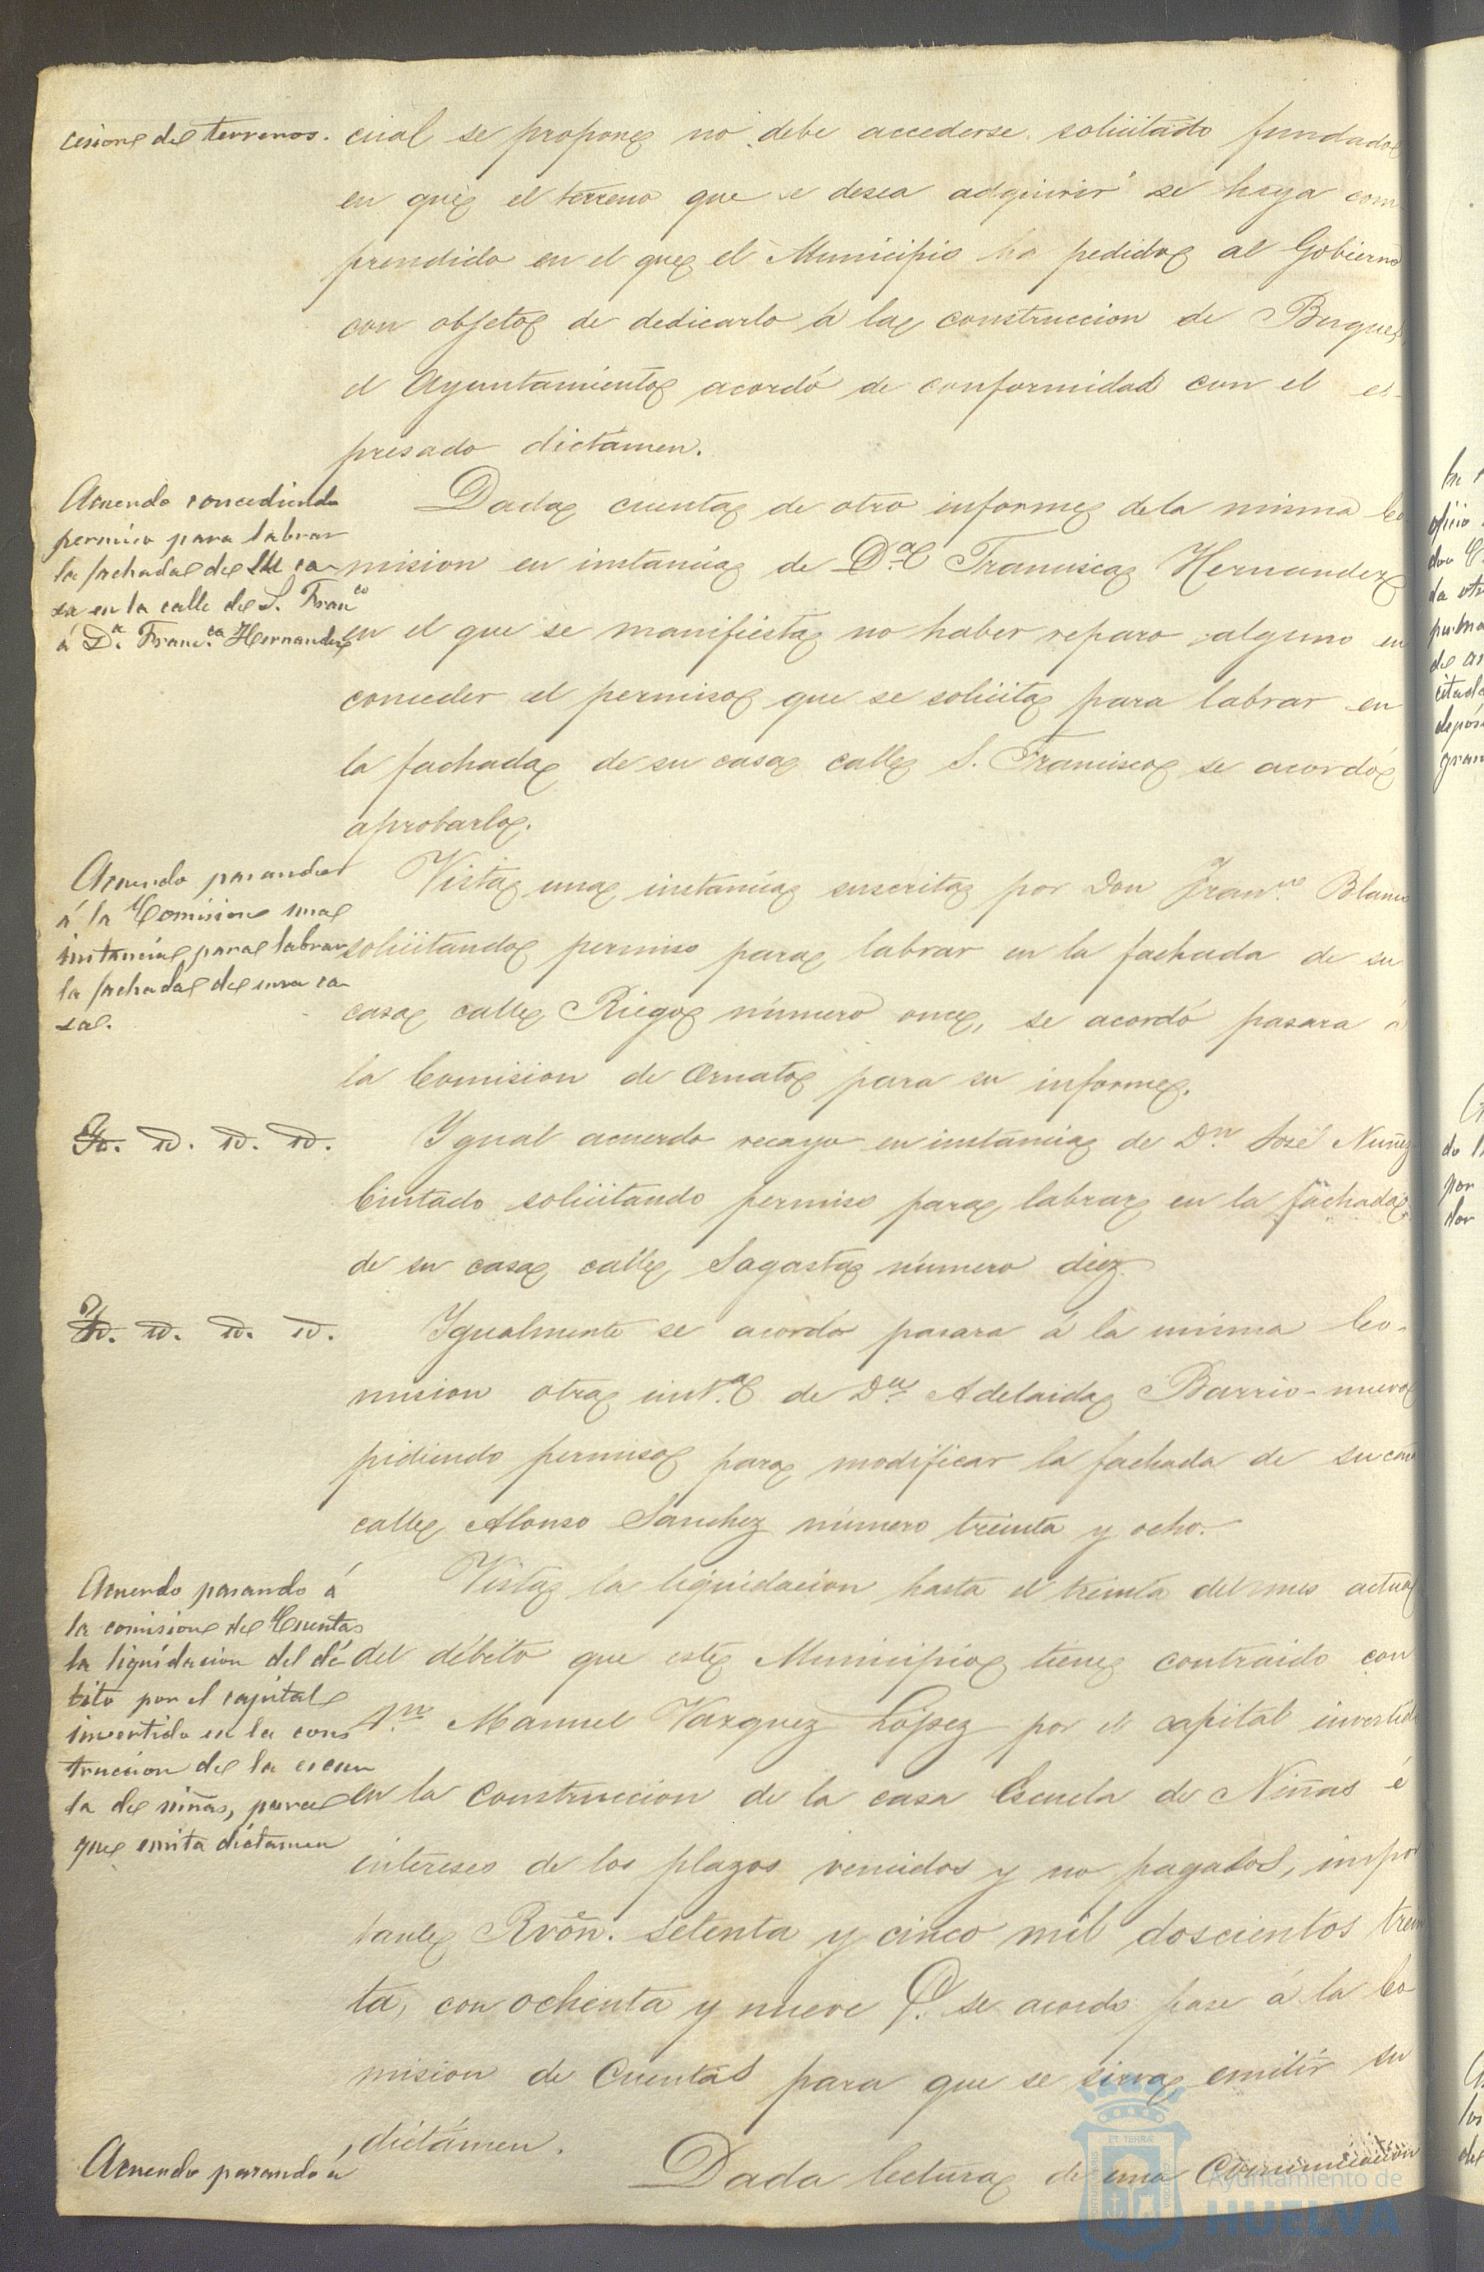 cesion de terrenos.
cual se propone no debe accederse solicitado fundado
en que el terreno que se desea adquirir se haya com
prendido en el que el Municipio ha pedido al Gobierno
con objeto de dedicarlo á la construccion de Buques
el Ayuntamiento acordó de conformidad con el es-
presado dictámen.
Acuerdo concediendo
permiso para labrar
la fachada de su ca-
sa en la calle de S. Fran.co
á D.a Franc.ca Hernandez
Dada cuenta de otro informe de la misma Co
mision en instancia de D.a Francisca Hernandez
en el que se manifiesta no haber reparo alguno en
conceder el permiso que se solicita para labrar en
la fachada de su casa calle S. Francisco se acordó
aprobarlo.
Acuerdo pasando
á la Comision una
instancia para labrar
la fachada de una ca-
sa.
Vista una instancia suscrita por Don Fran.co Blanco
solicitando permiso para labrar en la fachada de su
casa calle Riego número once, se acordó pasara á
la Comision de Ornato para su informe.
Id. id. id. id.
Ygual acuerdo recayo en instancia de D.n José Nuñez
Cintado solicitando permiso para labrar en la fachada
de su casa calle Sagasta número diez
Id. id. id. id.
Ygualmente se acordó pasara á la misma Co-
mision otra inst.a de D.a Adelaida Barrio-nuevo
pidiendo permiso para modificar la fachada de su casa
calle Alonso Sanchez número treinta y ocho.
Acuerdo pasando á
la comision de Cuentas
la liquidacion del dé-
bito por el capital
invertido en la cons
truccion de la escue
la de niñas, para
que emita dictamen
Vista la liquidacion hasta el treinta del mes actual
del débito que este Municipio tiene contraido con
D.n Manuel Vazquez López por el capital invertido
en la construccion de la casa Escuela de Niñas é
intereses de los plazos vencidos y no pagados, impor
tante Rvon. setenta y cinco mil doscientos trein
ta, con ochenta y nueve C. se acordó pase á la Co
mision de Cuentas para que se sirva emitir su
dictámen.
Acuerdo pasando á
Dada lectura de una Comunicacion
Ayuntamiento de
HUELVA